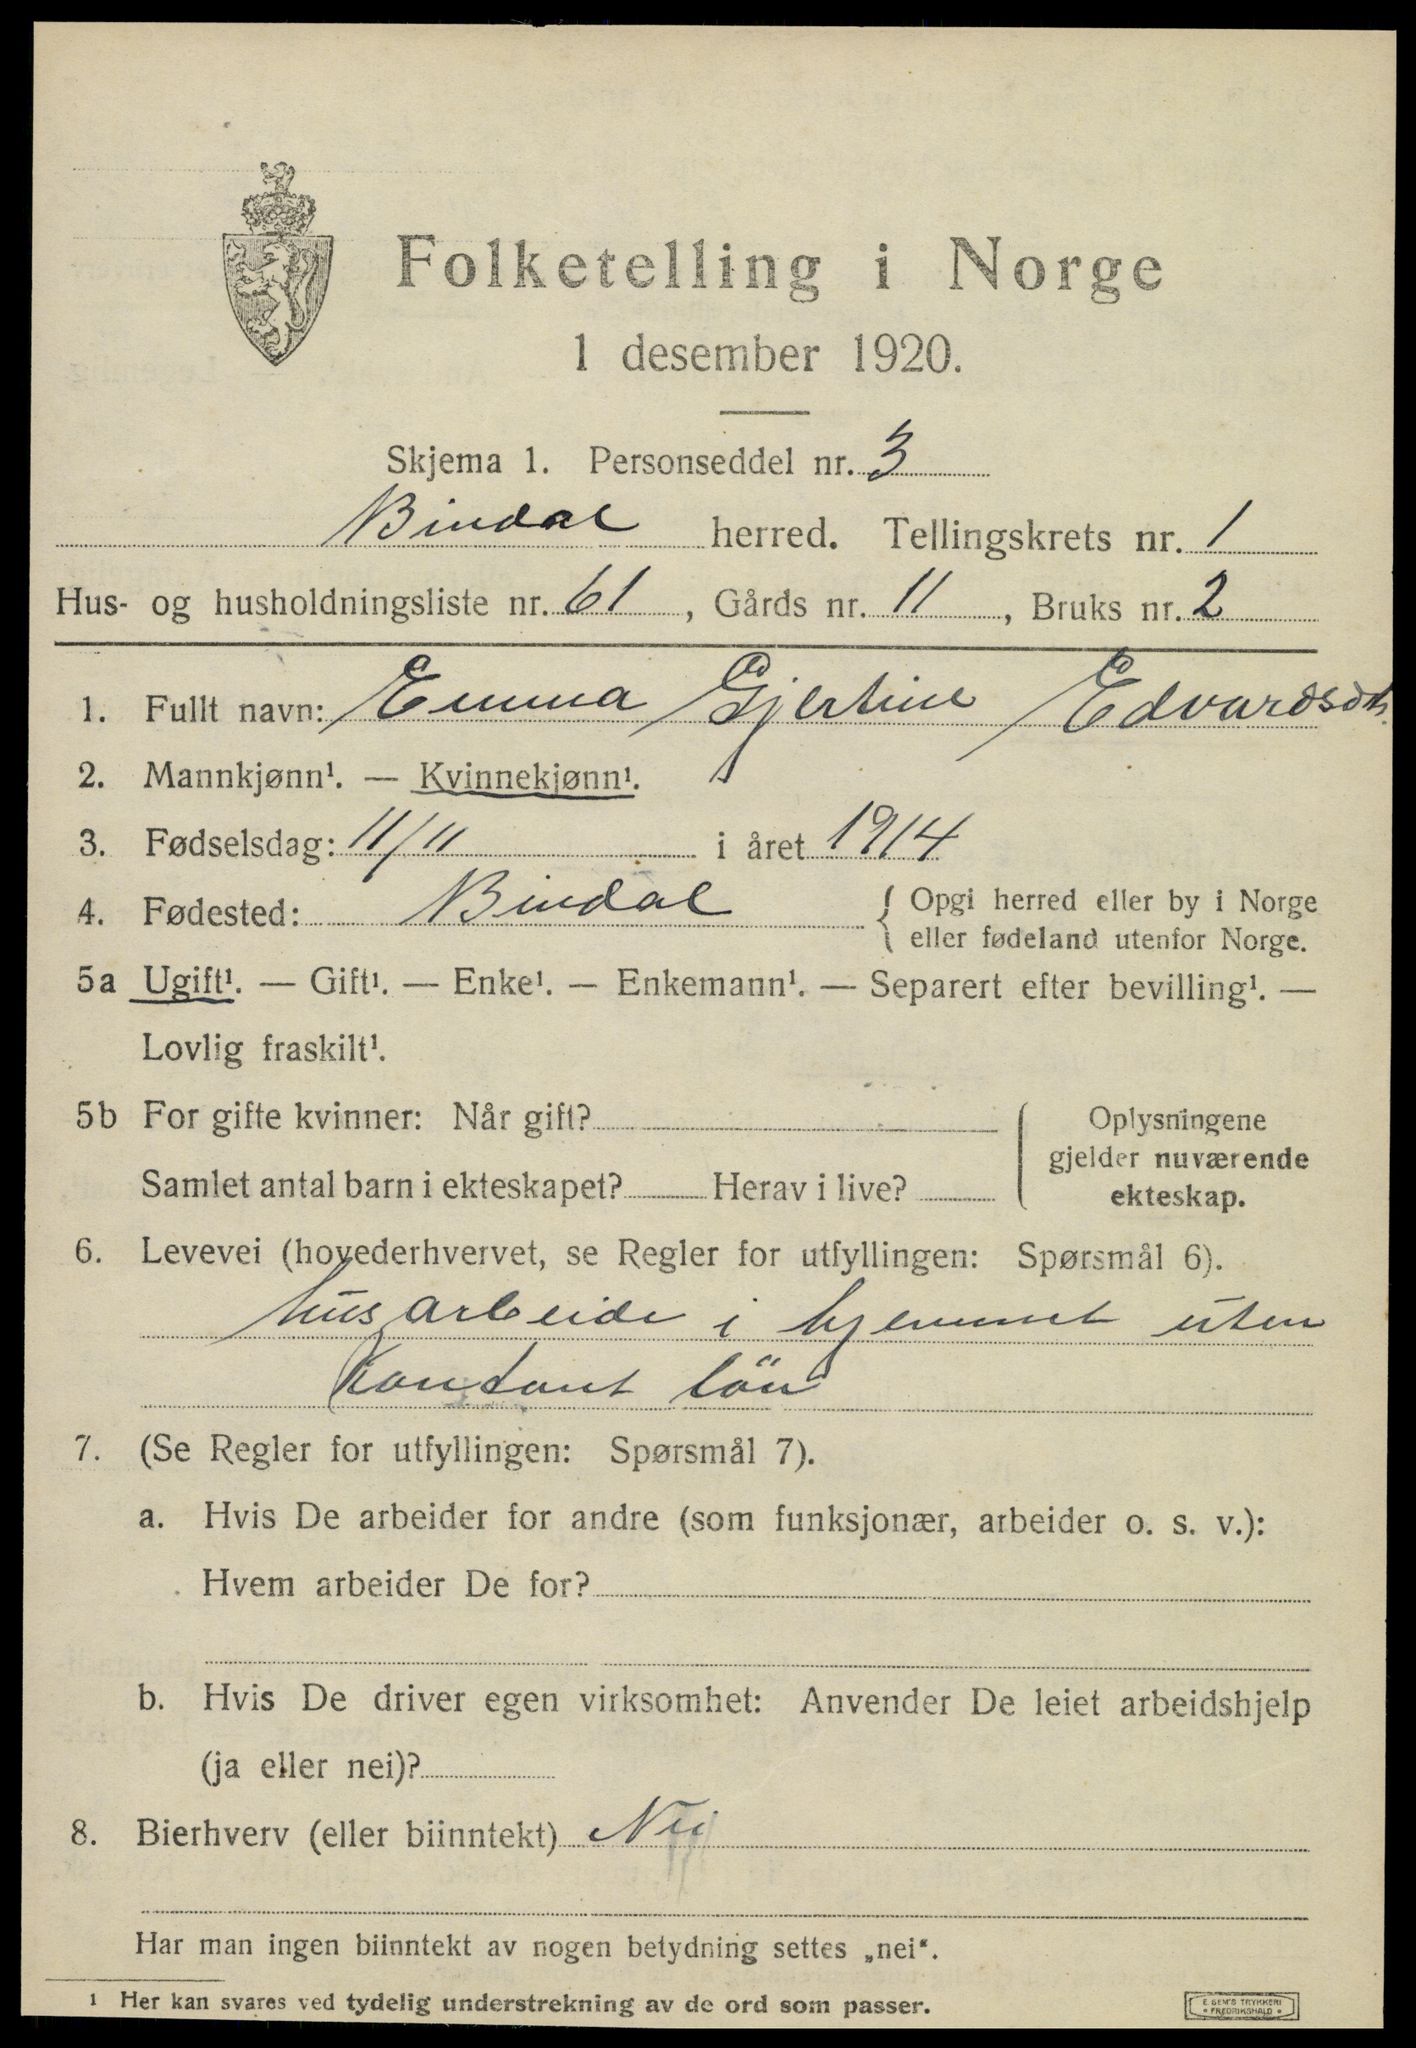 Folketelling i Norge
1 desember 1920.
Skjema 1. Personseddel nr. 3
Bindal herred. Tellingskrets nr. 1
Hus- og husholdningsliste nr. 61, Gårds nr. 11, Bruks nr. 2
1. Fullt navn: Emma Gjertine Edvardsdtr.
2. Mannkjønn¹. — Kvinnekjønn¹.
3. Fødselsdag: 11/11 i året 1914
4. Fødested: Bindal { Opgi herred eller by i Norge
eller fødeland utenfor Norge.
5a Ugift¹. — Gift¹. — Enke¹. — Enkemann¹. — Separert efter bevilling¹. —
Lovlig fraskilt¹.
5b For gifte kvinner: Når gift?
Samlet antal barn i ekteskapet? Herav i live?
Oplysningene
gjelder nuværende
ekteskap.
6. Levevei (hovederhvervet, se Regler for utfyllingen: Spørsmål 6).
husarbeide i hjemmet uten
kontant lön
7. (Se Regler for utfyllingen: Spørsmål 7).
a. Hvis De arbeider for andre (som funksjonær, arbeider o. s. v.):
Hvem arbeider De for?
b. Hvis De driver egen virksomhet: Anvender De leiet arbeidshjelp
(ja eller nei)?
8. Bierhverv (eller biinntekt) Nei
Har man ingen biinntekt av nogen betydning settes „nei“.
1 Her kan svares ved tydelig understrekning av de ord som passer.
E SEM'S TRYKKERI
• FREDRIKSHALD •